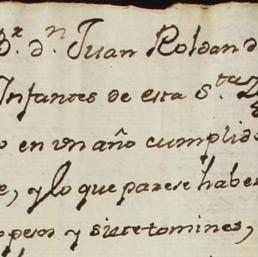 Br. dn. Juan Roldan d
Infantes de esta Sta.
o en un año cumplido
e, y lo que parese haber
o pesos y siete tomines,